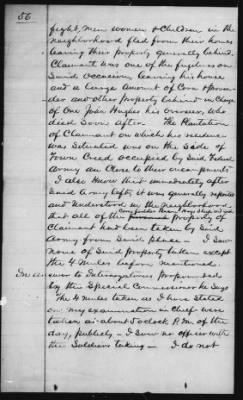 56
fight, Men women & Children in the
neighborhood fled from their homes
leaving their property generally behind.
Claimant was one of the fugitives on
Said occasion leaving his house
and a large amount of Corn & fodder
and other property behind in Charge
of One John his overseer, who
died Soon after. The Plantation
of Claimant on which his residence
was Situated was on the Side of
Town Creek occupied by Said Federal
Army an Close to their encampments
I also know that immediately after
Said Army left, it was generally reported
and understood in the neighborhood
that all of the Corn fodder property of
Claimant had been taken by Said
Army from Said place - I Saw
none of Said property taken except
the 4 Mules before mentioned.
In answer to Interrogatories Propounded
by the Special Commissioner he Says
The 4 Mules taken as I have Stated
on my examination in Chief were
taken at about 5 oclock P.M. of the
day, publicly - I Saw no officer with
the Soldiers taking - I do not